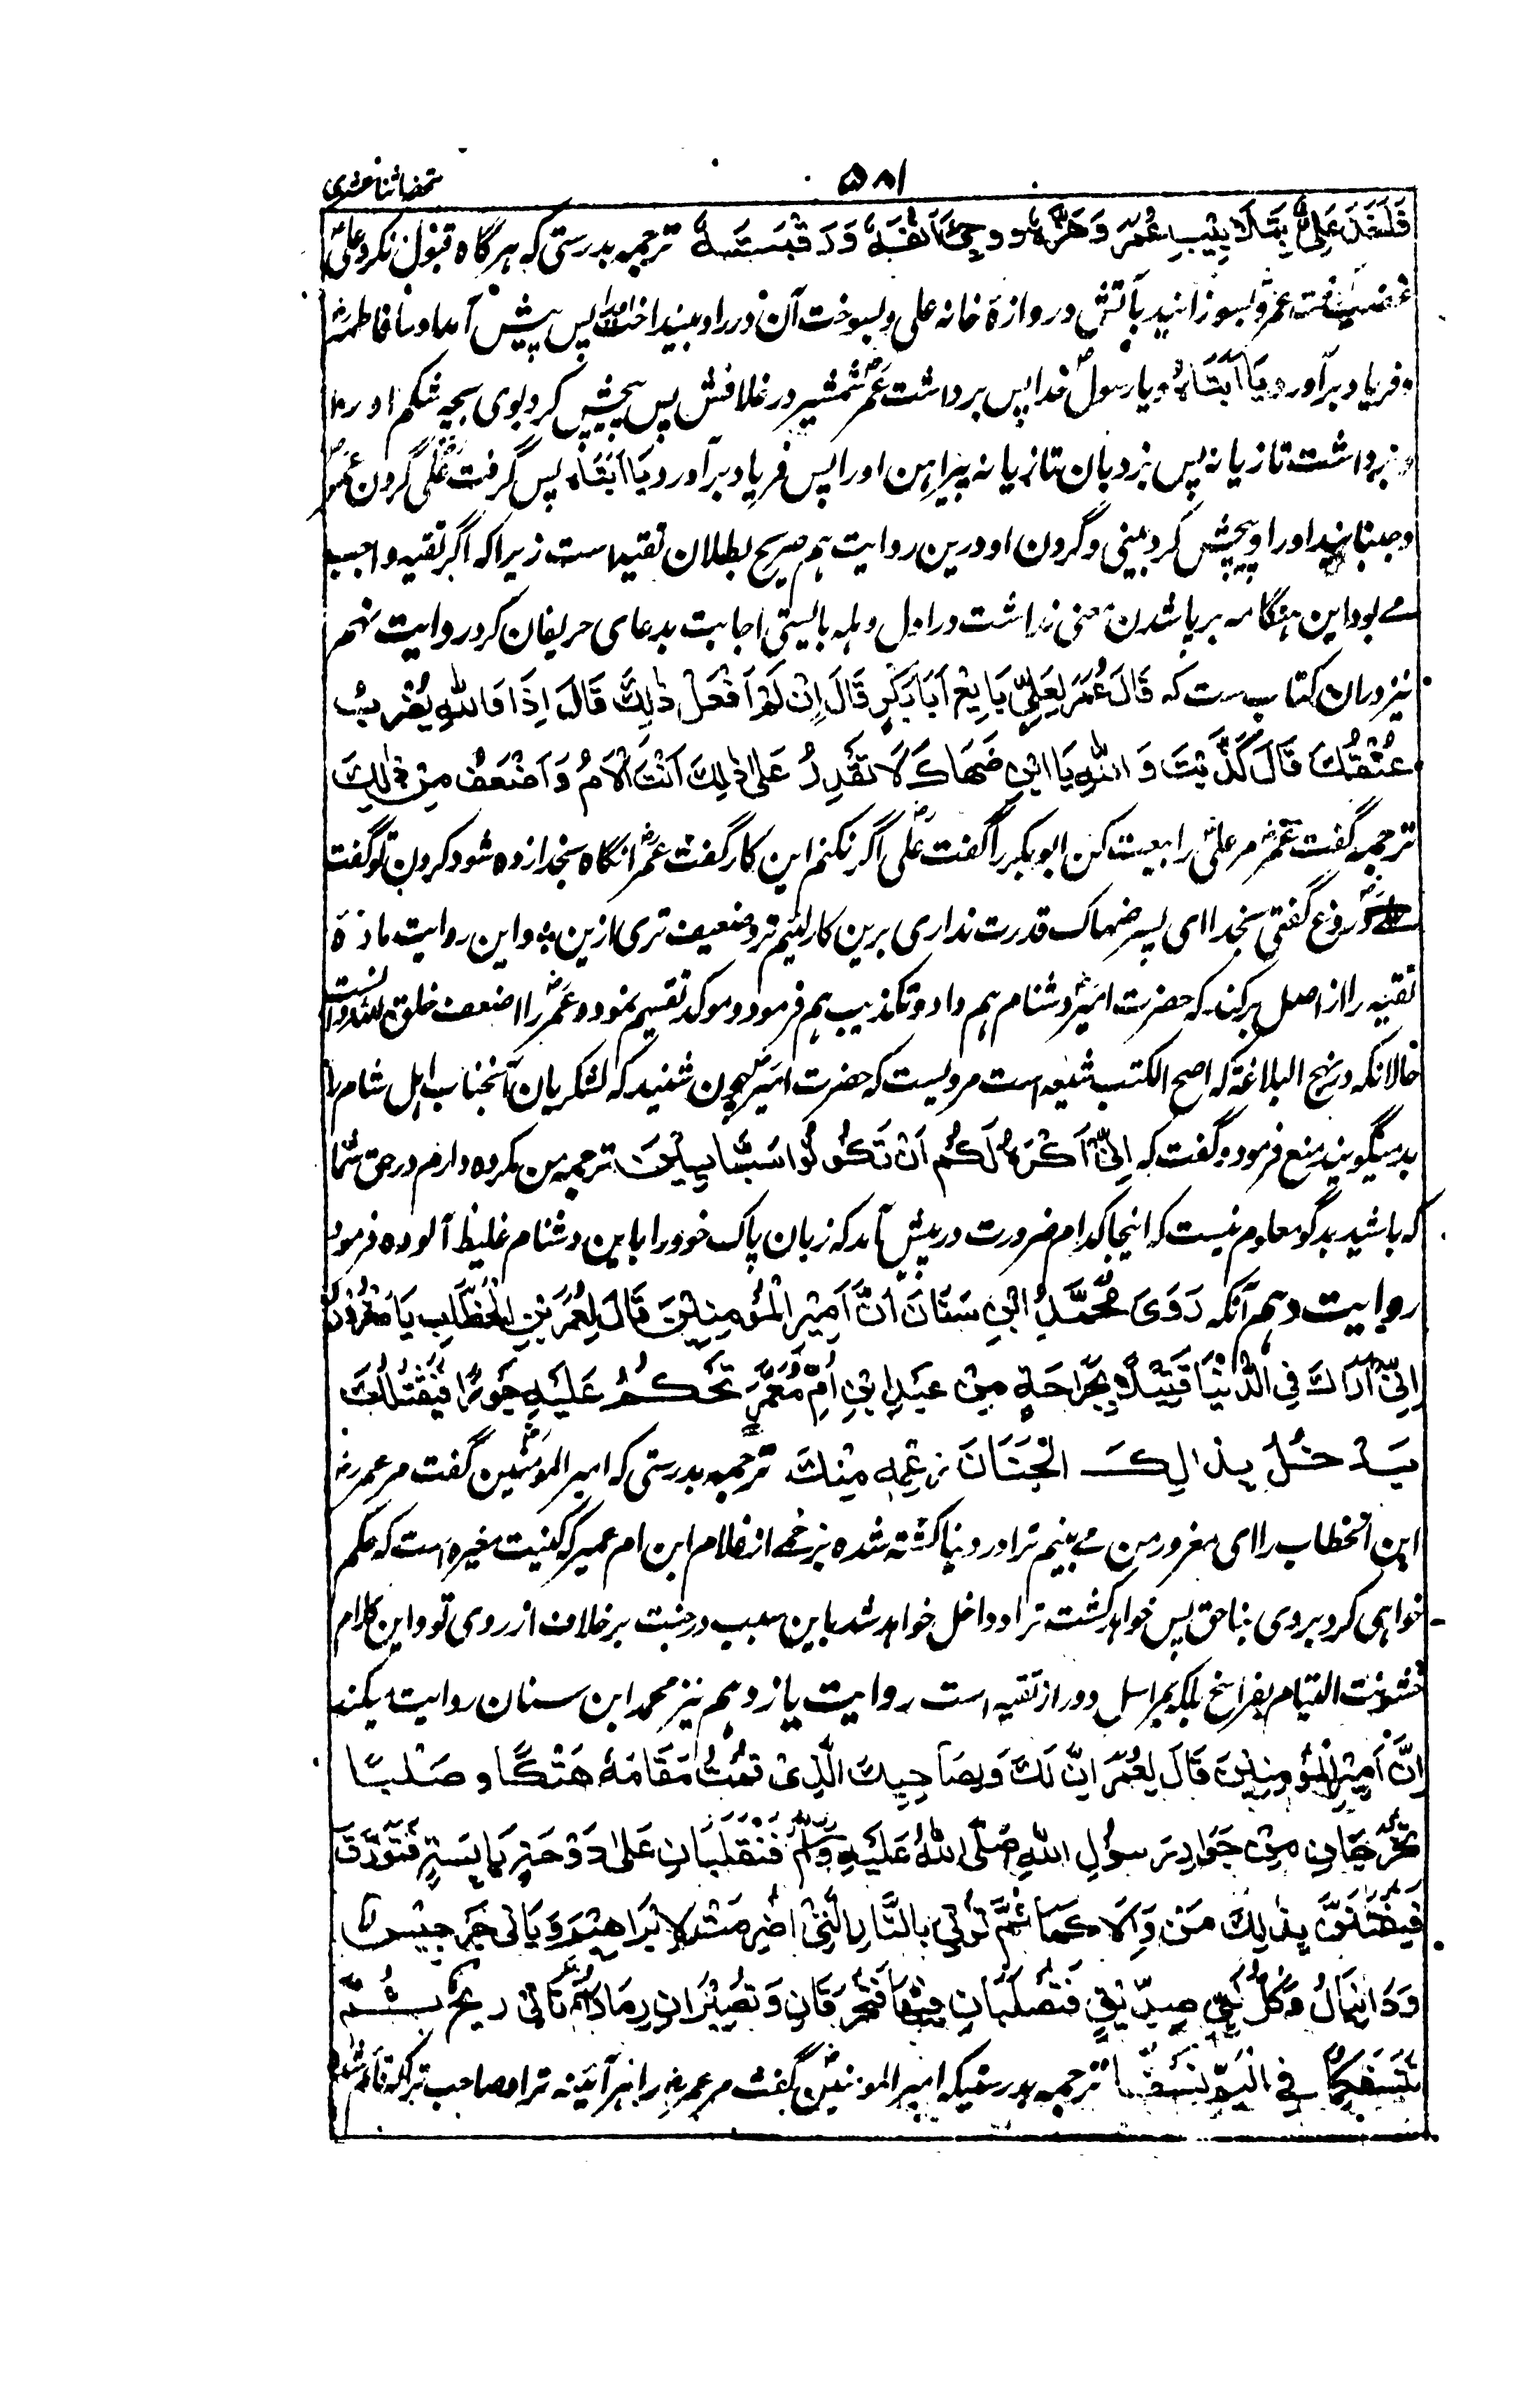 ۵۸۱
تحفه اثنا عشری
فَاَخَذَ عَلِیٌّ بِتَلَابِیْبِ عُمَرَ وَهَزَّهٗ وَوَجَأَ اَنْفَهٗ وَرَقَبَتَهٗ ترجمه بدرستی که هرگاه قبول نکرد علیؓ
غضب گرفت عمرؓ و بسوزانید بآتش دروازهٔ خانه علی و بسوخت آن در را و بینداخت پس پیش آمد او را فاطمهؓ
و فریاد برآورد یَا اَبَتَاهُ و یا رسول خدا پس برداشت عمرؓ شمشیر در غلافش پس پیچش کرد بوی بجیه شکم او را
و برداشت تازیانه پس زد بآن تازیانه پیراهن او را پس فریاد برآورد یَا اَبَتَاهُ پس گرفت علیؓ گردن عمرؓ
و جنبانید او را و پیچش کرد بینی و گردن او درین روایت هم صریح بطلان تقیه است زیرا که اگر تقیه واجب
مے بود این هنگامه برپا شدن معنی نداشت در اول وهله بایستی اجابت بدعای حریفان کرد روایت نهم
نیز در ان کتاب ست که قَالَ عُمَرُ لِعَلِیٍّ بَایِعْ اَبَا بَکْرٍ قَالَ اِنْ لَمْ اَفْعَلْ ذٰلِكَ قَالَ اِذًا وَاللهِ یُضْرَبُ
عُنُقُكَ قَالَ کَذَبْتَ وَاللهِ یَا ابْنَ ضَهَاكَ لَا تَقْدِرُ عَلٰی ذٰلِكَ اَنْتَ اَلْاَمُ وَاَضْعَفُ مِنْ ذٰلِكَ
ترجمه گفت عمرؓ مر علیؓ را بیعت کن ابوبکر را گفت علیؓ اگر نکنم این کار گفت عمرؓ انگاه بخدا زده شود گردن تو گفت
دروغ گفتی بخدا ای پسر ضهاک قدرت نداری برین کار لئیم تر و ضعیف تری ازین و این روایت ماده
تقیه را از اصل برکند که حضرت امیرؓ دشنام هم داد و تکذیب هم فرمود و موکد بقسم نمود و عمرؓ را اضعف خلق الله دانست
حالانکه در نهج البلاغة که اصح الکتب شیعه است مرویست که حضرت امیرؓ چون شنید که لشکریان آنجناب اهل شام را
بد میگویند منع فرمود و گفت که اِنِّیْ اَکْرَهُ لَکُمْ اَنْ تَکُوْنُوْا سَبَّابِیْنَ ترجمه من مکروه دارم در حق شما
که باشید بدگو معلوم نیست که اینجا کدام ضرورت درپیش آمد که زبان پاک خود را باین دشنام غلیظ آلوده فرمود
روایت دهم آنکه رَوٰی مُحَمَّدُ ابْنُ سِنَانَ اَنَّ اَمِیْرَ الْمُؤْمِنِیْنَ قَالَ لِعُمَرَ بْنِ الْخَطَّابِ یَا مَغْرُوْرُ
اِنِّیْ اَرَاكَ فِی الدُّنْیَا قَتِیْلًا بِجَرَاحَةٍ مِنْ عَبْدِ ابْنِ اُمِّ مُعَمَّرٍ تَحْکُمُ عَلَیْهِ جَوْرًا فَیَقْتُلُكَ
یَدْخُلُ بِذَالِكَ الْجِنَانَ رَغْمًا مِنْكَ ترجمه بدرستی که امیر المؤمنینؓ گفت مر عمرؓ
ابن الخطاب را ای مغرور من مے بینم ترا در دنیا کشته شده بزخمے از غلام ابن ام عمیر که کنیت مغیره است که حکم
خواهی کرد بروی بناحق پس خواهد کشت ترا و داخل خواهد شد باین سبب در جنت برخلاف از روی تو و این کلام
خشونت التیام بفراسخ بلکه بمراحل دور از تقیه است روایت یازدهم نیز محمد ابن سنان روایت میکند
اِنَّ اَمِیْرَ الْمُؤْمِنِیْنَ قَالَ لِعُمَرَ اِنَّ لَكَ وَلِصَاحِبِكَ الَّذِیْ قُمْتَ مَقَامَهٗ هَتْکًا وَصَلْبًا
تُخْرَجَانِ مِنْ جَوَارِ رَسُوْلِ اللهِ صَلَّی اللهُ عَلَیْهِ وَسَلَّمَ فَتُصْلَبَانِ عَلٰی دَوْحَةٍ یَابِسَةٍ فَتُوْرَقُ
فَیُفْتَتَنُ بِذٰلِكَ مَنْ وَالَاکُمَا ثُمَّ یُؤْتٰی بِالنَّارِ الَّتِیْ اُضْرِمَتْ لِاِبْرَاهِیْمَ وَیَاْتِیْ جِرْجِیْسُ
وَدَانِیَالُ وَکُلُّ نَبِیٍّ وَصِدِّیْقٍ فَتُصْلَبَانِ فِیْهَا فَتُحْرَقَانِ وَتَصِیْرَانِ رَمَادًا ثُمَّ تَاْتِیْ رِیْحٌ
تَنْسِفُکُمَا فِی الْیَمِّ نَسْفًا ترجمه بدرستیکه امیر المومنینؓ گفت مر عمرؓ را هرآئینه ترا و صاحب ترا که قائم شده